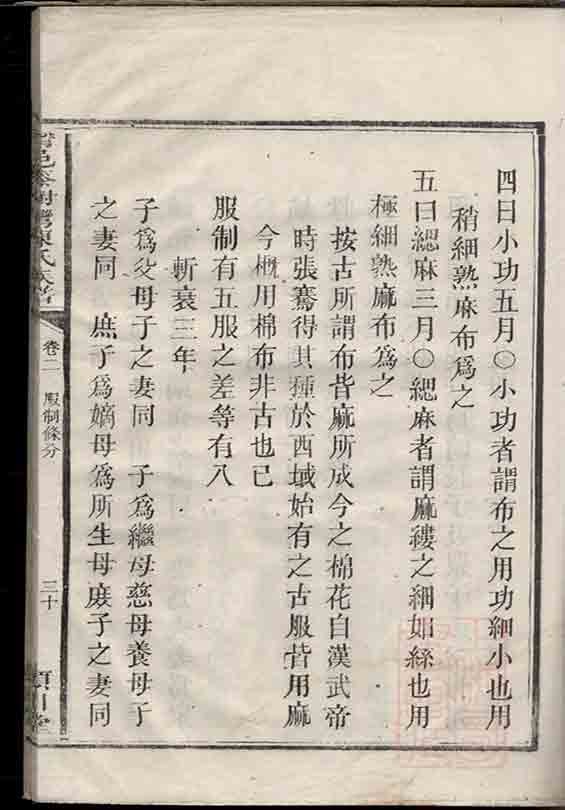 四曰小功五月○小功者謂布之用功細小也用
稍細熟麻布爲之
五曰緦麻三月○緦麻者謂麻縷之細如絲也用
極細熟麻布爲之
按古所謂布皆麻所成今之棉花自漢武帝
時張騫得其種於西域始有之古服皆用麻
今概用棉布非古也已
服制有五服之差等有八
斬衰三年
子爲父母子之妻同　子爲繼母慈母養母子
之妻同　庶子爲嫡母爲所生母庶子之妻同
氏族譜
卷二　服制條分
三十
潁川堂